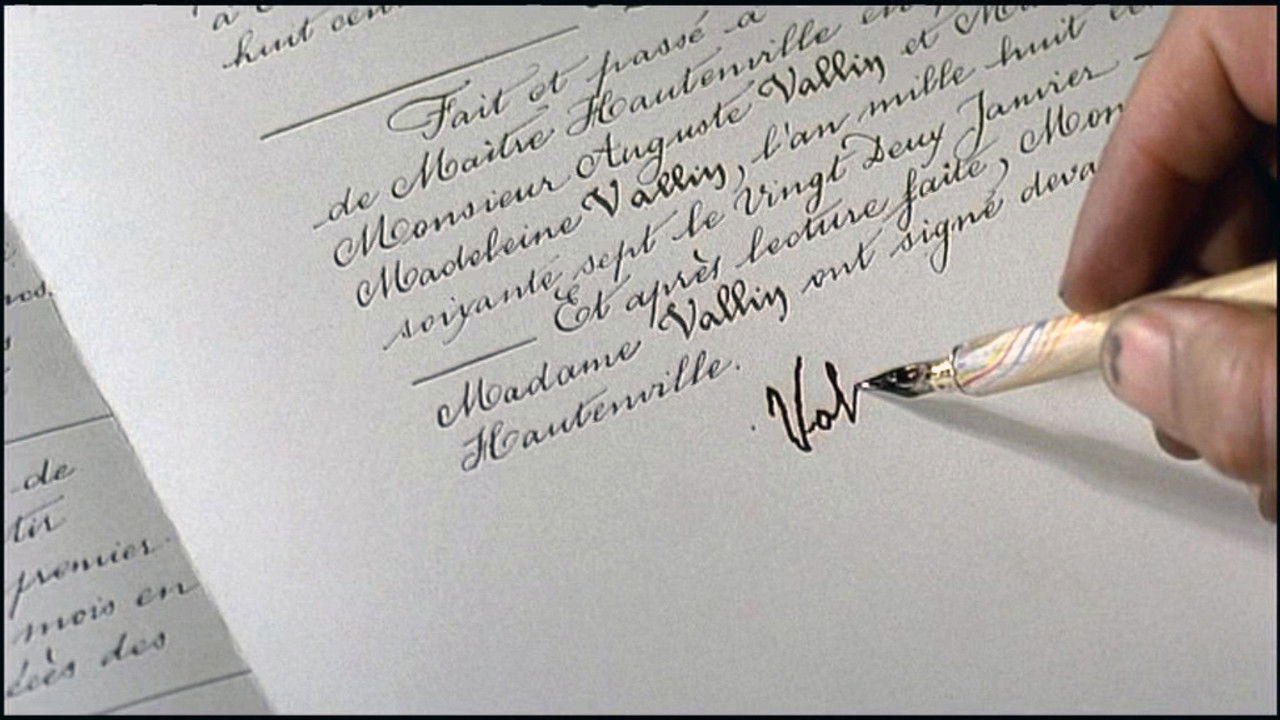 à
huit cent
Fait et passé à
de Maître Hautenville en
Monsieur Auguste Vallin et
Madeleine Vallin, l'an mille huit
soixante sept le Vingt Deux Janvier
Et après lecture faite, Mon
Madame Vallin ont signé deva
Hautenville.
Val
de
tir
premier
mois en
des